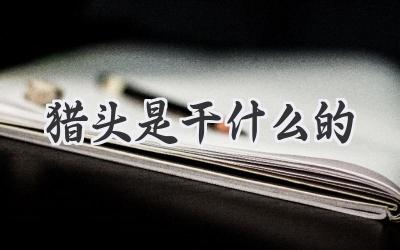 猎头是干什么的